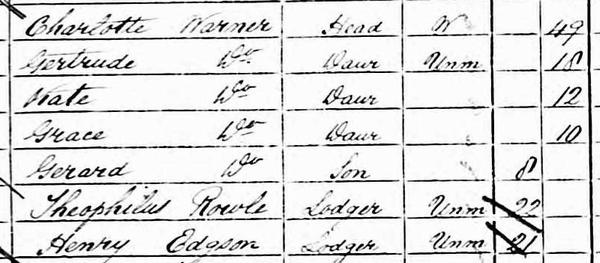 Charlotte Warner Head W 49
Gertrude Do Daur Unm 18
Kate Do Daur 12
Grace Do Daur 10
Gerard Do Son 8
Theophilus Rowle Lodger Unm 22
Henry Edgson Lodger Unm 21